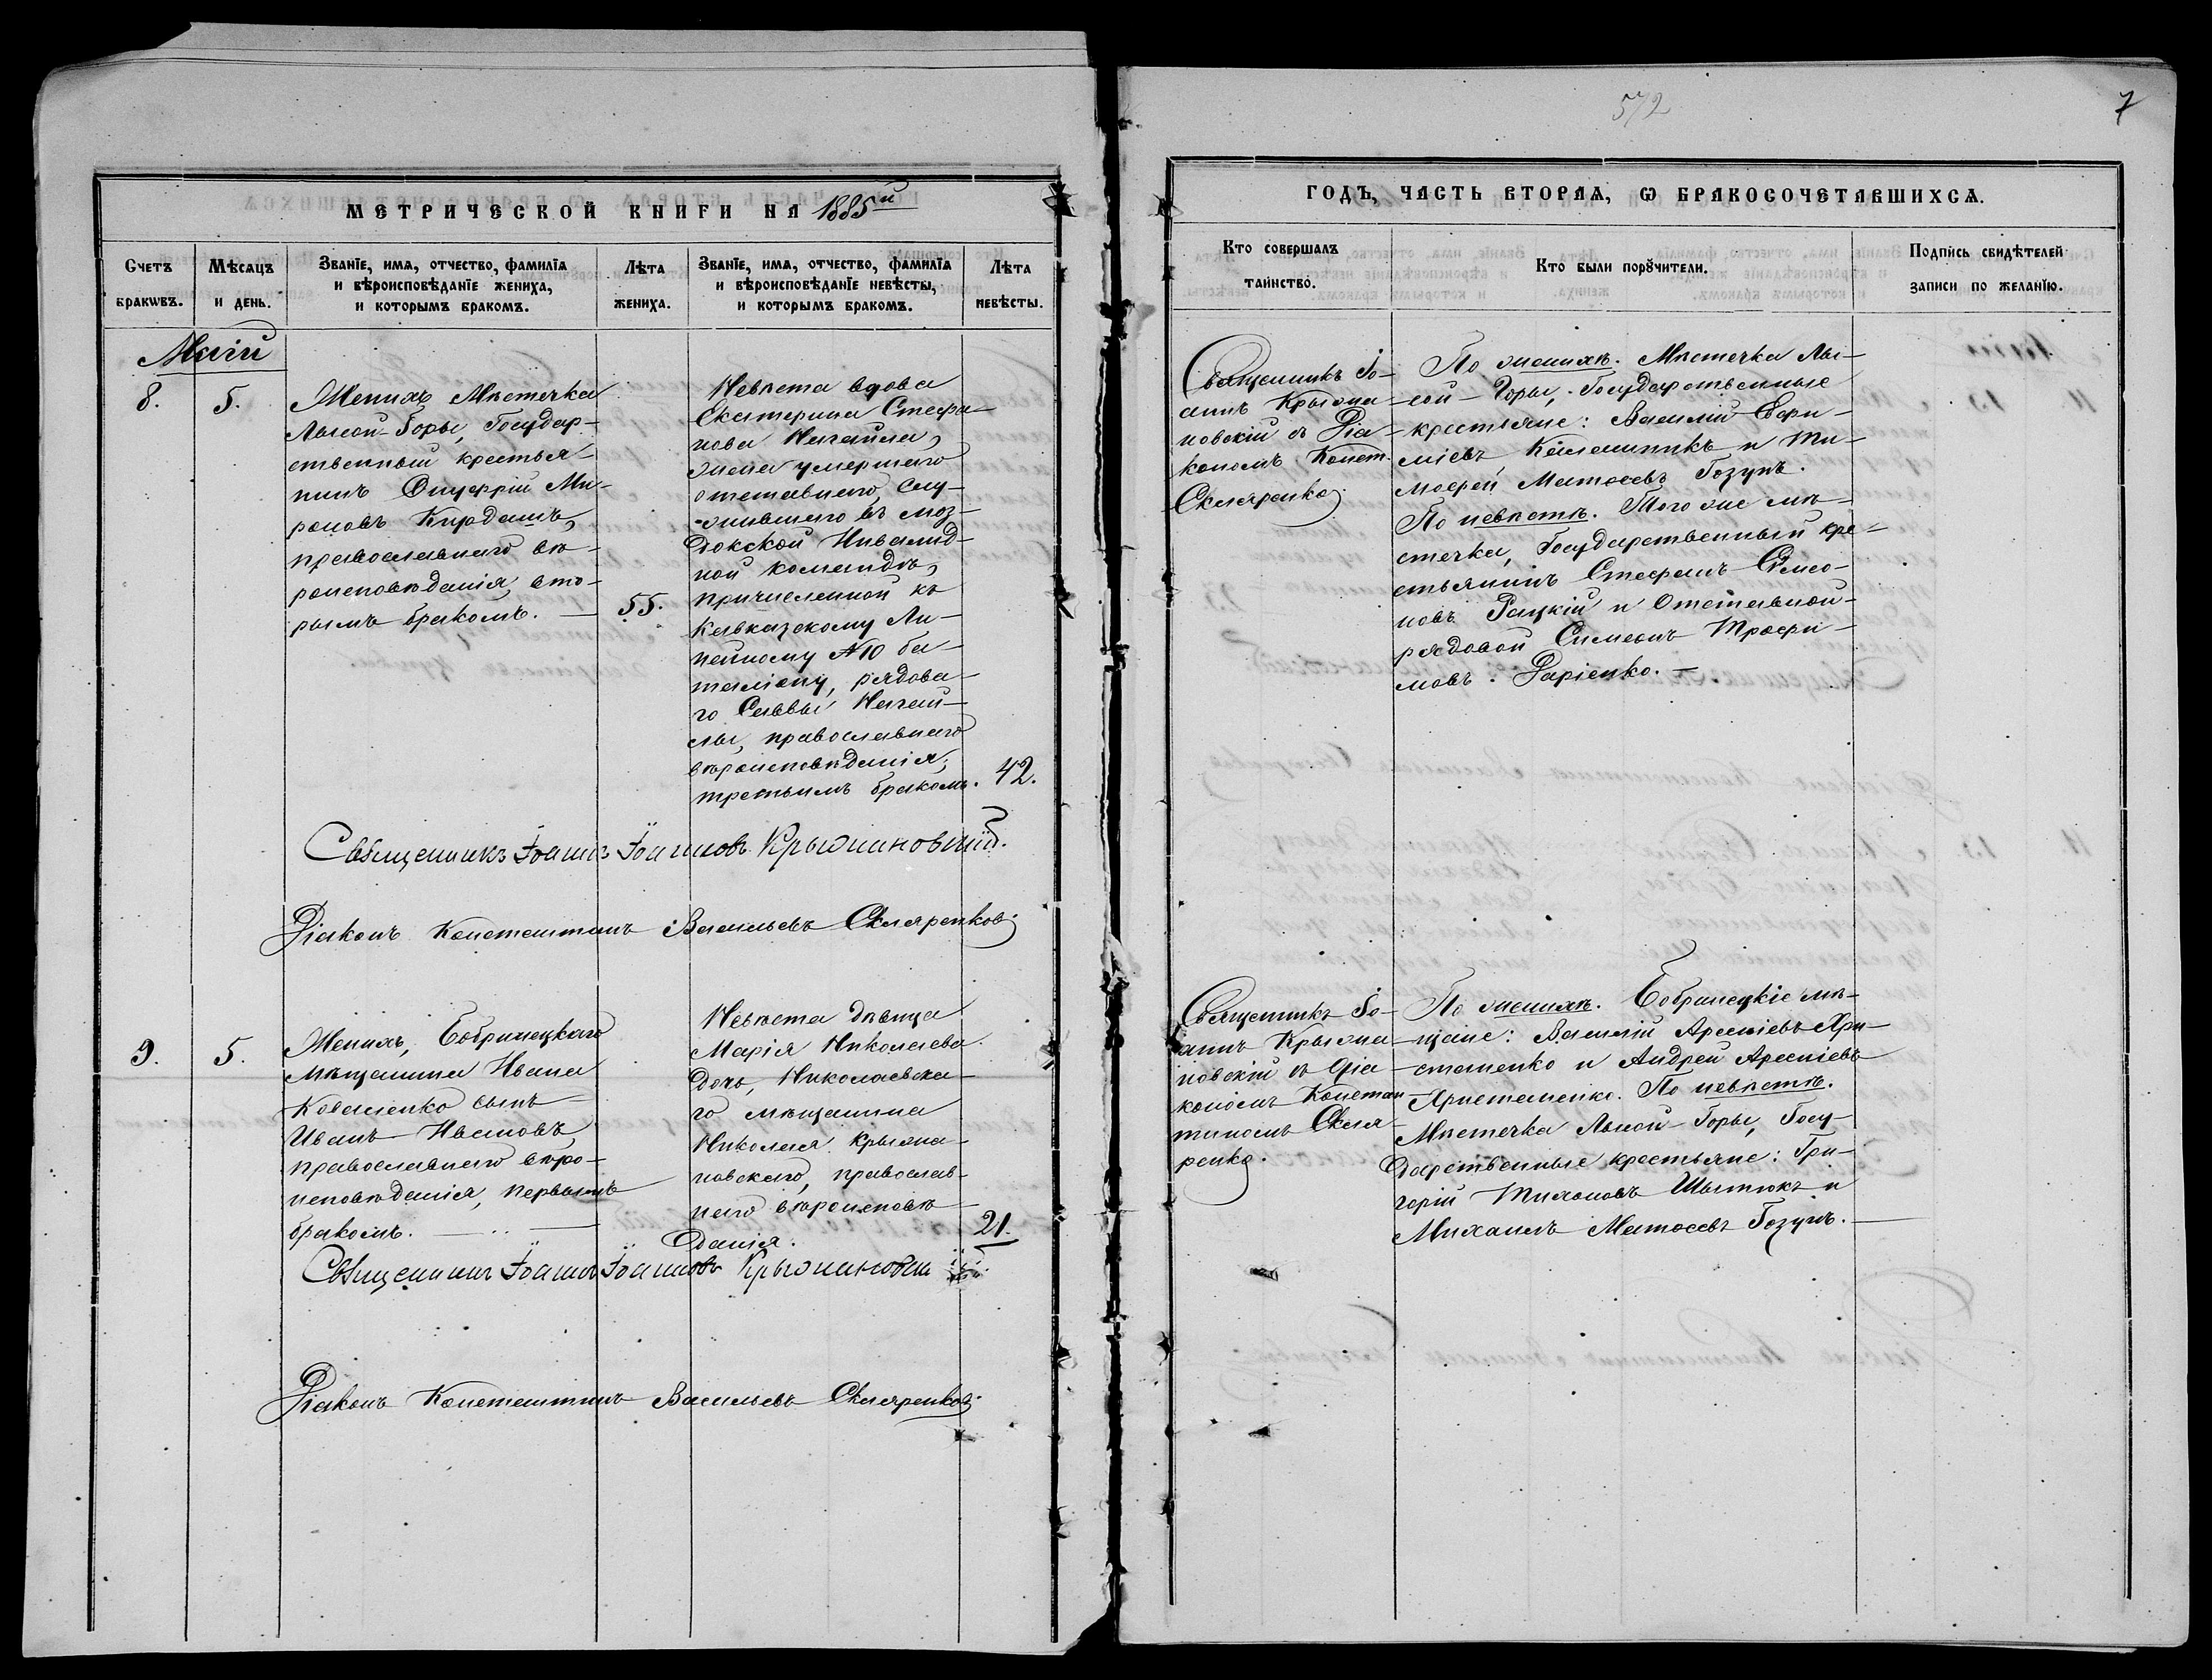 572
7
МЕТРИЧЕСКОЙ КНИГИ НА 1885й
ГОДЪ, ЧАСТЬ ВТОРАЯ, Ѡ БРАКОСОЧЕТАВШИХСѦ.
Счетъ браковъ.
Мѣсяцъ и день.
Званїе, имѧ, отчество, фамилїѧ
и вѣроисповѣданїе жениха,
и которымъ бракомъ.
Лѣта жениха.
Званїе, имѧ, отчество, фамилїѧ
и вѣроисповѣданїе невѣсты,
и которымъ бракомъ.
Лѣта невѣсты.
Кто совершалъ таинство.
Кто были порꙋчители.
Подпись свидѣтелей
записи по желанїю.
Май
8.
5.
Женихъ Мѣстечка
Лысой-Горы, Государ-
ственный крестья-
нинъ Онуфрій Ми-
роновъ Кирдашъ,
православнаго вѣ-
роисповѣданія, вто-
рымъ бракомъ. —
55.
Невѣста вдова
Екатерина Стефа-
нова Нагайла,
жена умершаго
отставнаго, слу-
жившаго въ моз-
докской Инвалид-
ной командѣ,
причисленной къ
Кавказскому Ли-
нейному №10 ба-
таліону, рядова-
го Саввы Нагай-
лы, православнаго
вѣроисповѣданія,
третьимъ бракомъ.
42.
Священникъ Іо-
аннъ Крыжа-
новскій съ Діа-
кономъ Конст.
Скляренко.
По женихѣ. Мѣстечка Лы-
сой-Горы, Государственные
крестьяне: Василій Евфи-
міевъ Калашникъ и Ти-
мофей Матѳеевъ Гозунъ.
По невѣстѣ. Того же мѣ-
стечка, Государственный кре-
стьянинъ Стефанъ Симео-
новъ Рацкій и Отставной
рядовой Симеонъ Трофи-
мовъ Даріенко. —
Священникъ Іоаннъ Іоанновъ Крыжановскій.
Діаконъ Константинъ Васильевъ Скляренковъ
9.
5.
Женихъ, Бобринецкаго
мѣщанина Ивана
Коваленко сынъ
Иванъ Ивановъ,
православнаго вѣро-
исповѣданія, первымъ
бракомъ. —
Невѣста дѣвица
Марія Николаева
дочь, Николаевска-
го мѣщанина
Николая Крыжа-
новскаго, православ-
наго вѣроисповѣ-
данія.
21.
Священникъ Іо-
аннъ Крыжа-
новскій съ Діа-
кономъ Констан-
тиномъ Скля-
ренко.
По женихѣ. Бобринецкіе мѣ-
щане: Василій Арсеніевъ Хри-
станенко и Андрей Арсеніевъ
Христаненко. По невѣстѣ.
Мѣстечка Лысой-Горы, Госу-
дарственные крестьяне: Гри-
горій Тихоновъ Шытюкъ и
Михаилъ Матѳеевъ Гозунъ. —
Священникъ Іоаннъ Іоанновъ Крыжановскій.
Діаконъ Константинъ Васильевъ Скляренковъ